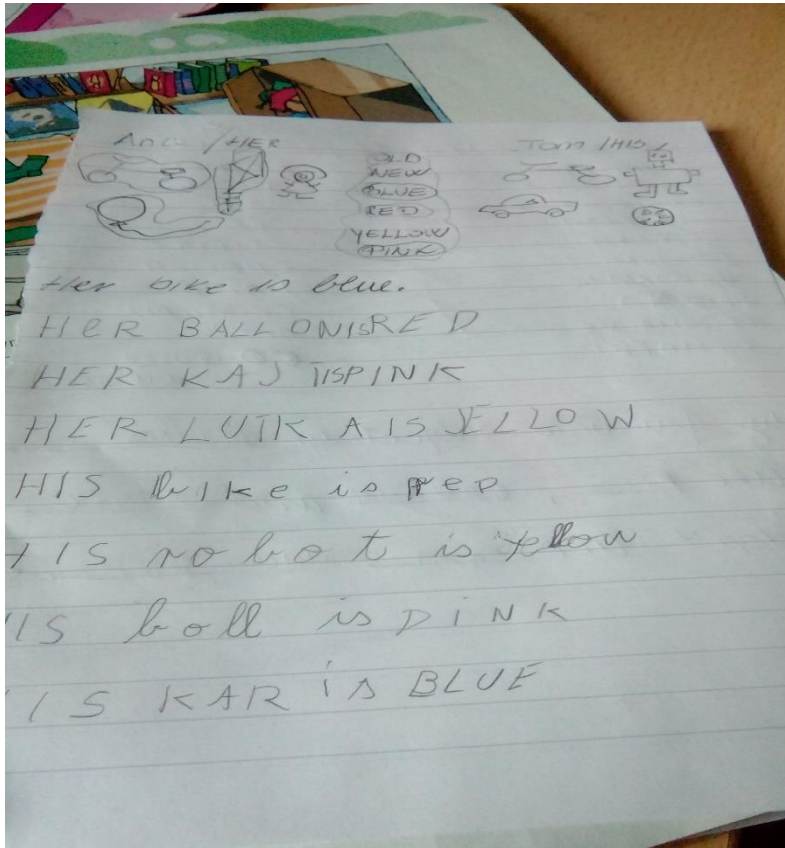 Ana / HER
Tom / HIS
OLD
NEW
BLUE
RED
YELLOW
PINK
Her bike is blue.
HER BALLONISRED
HER KAJTISPINK
HER LUTKA IS JELLOW
HIS bike is red
HIS robot is yellow
IS boll is PiNK
IS KAR is BLUE